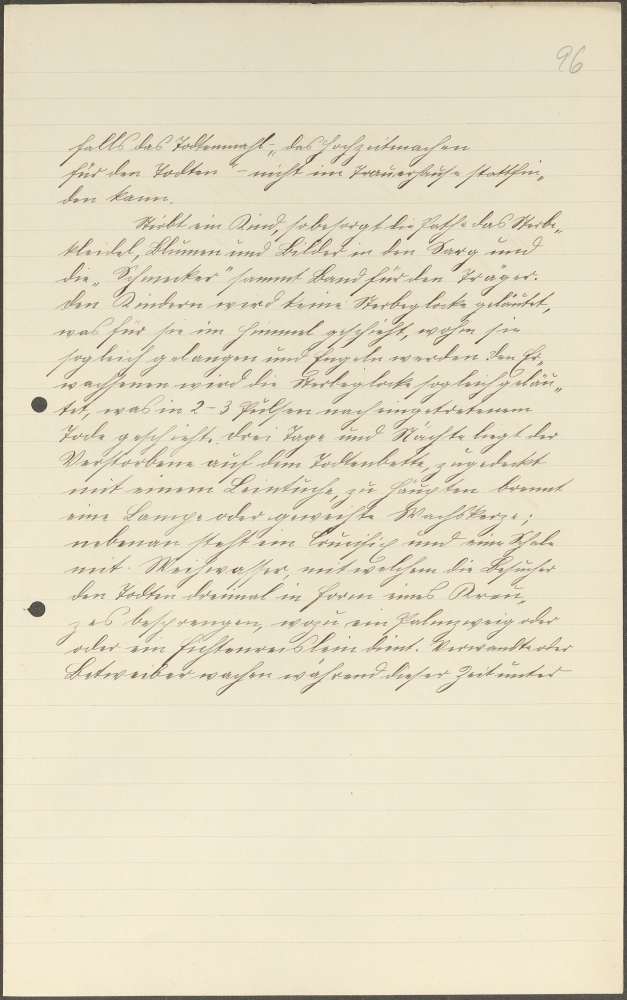 96
falls das Todtenmahl – „das Hochzeitmachen
für den Todten“ – nicht im Trauerhause stattfin„
den kann.
Stirbt ein Kind, so besorgt die Pathe das Sterbe„
kleidel, Blumen und Bilder in den Sarg und
die „Schmecker“ sammt Band für den Träger.
Den Kindern wird keine Sterbeglocke geläutet,
was für sie im Himmel geschieht, wohin sie
sogleich gelangen und Engeln werden. Den Er„
wachsenen wird die Sterbeglocke sogleich geläu„
tet, was in 2–3 Pulsen nach eingetretenem
Tode geschieht. Drei Tage und Nächte liegt der
Verstorbene auf dem Todtenbette, zugedeckt
mit einem Leintuche, zu Häupten brennt
eine Lampe oder geweihte Wachskerze;
nebenan steht ein Crucifix und eine Schale
mit Weihwasser, mit welchem die Besucher
den Todten dreimal in Form eines Kreu„
zes besprengen, wozu ein Palmzweig oder
oder ein Fichtenreislein dient. Verwandte oder
Betweiber wachen während dieser Zeit unter